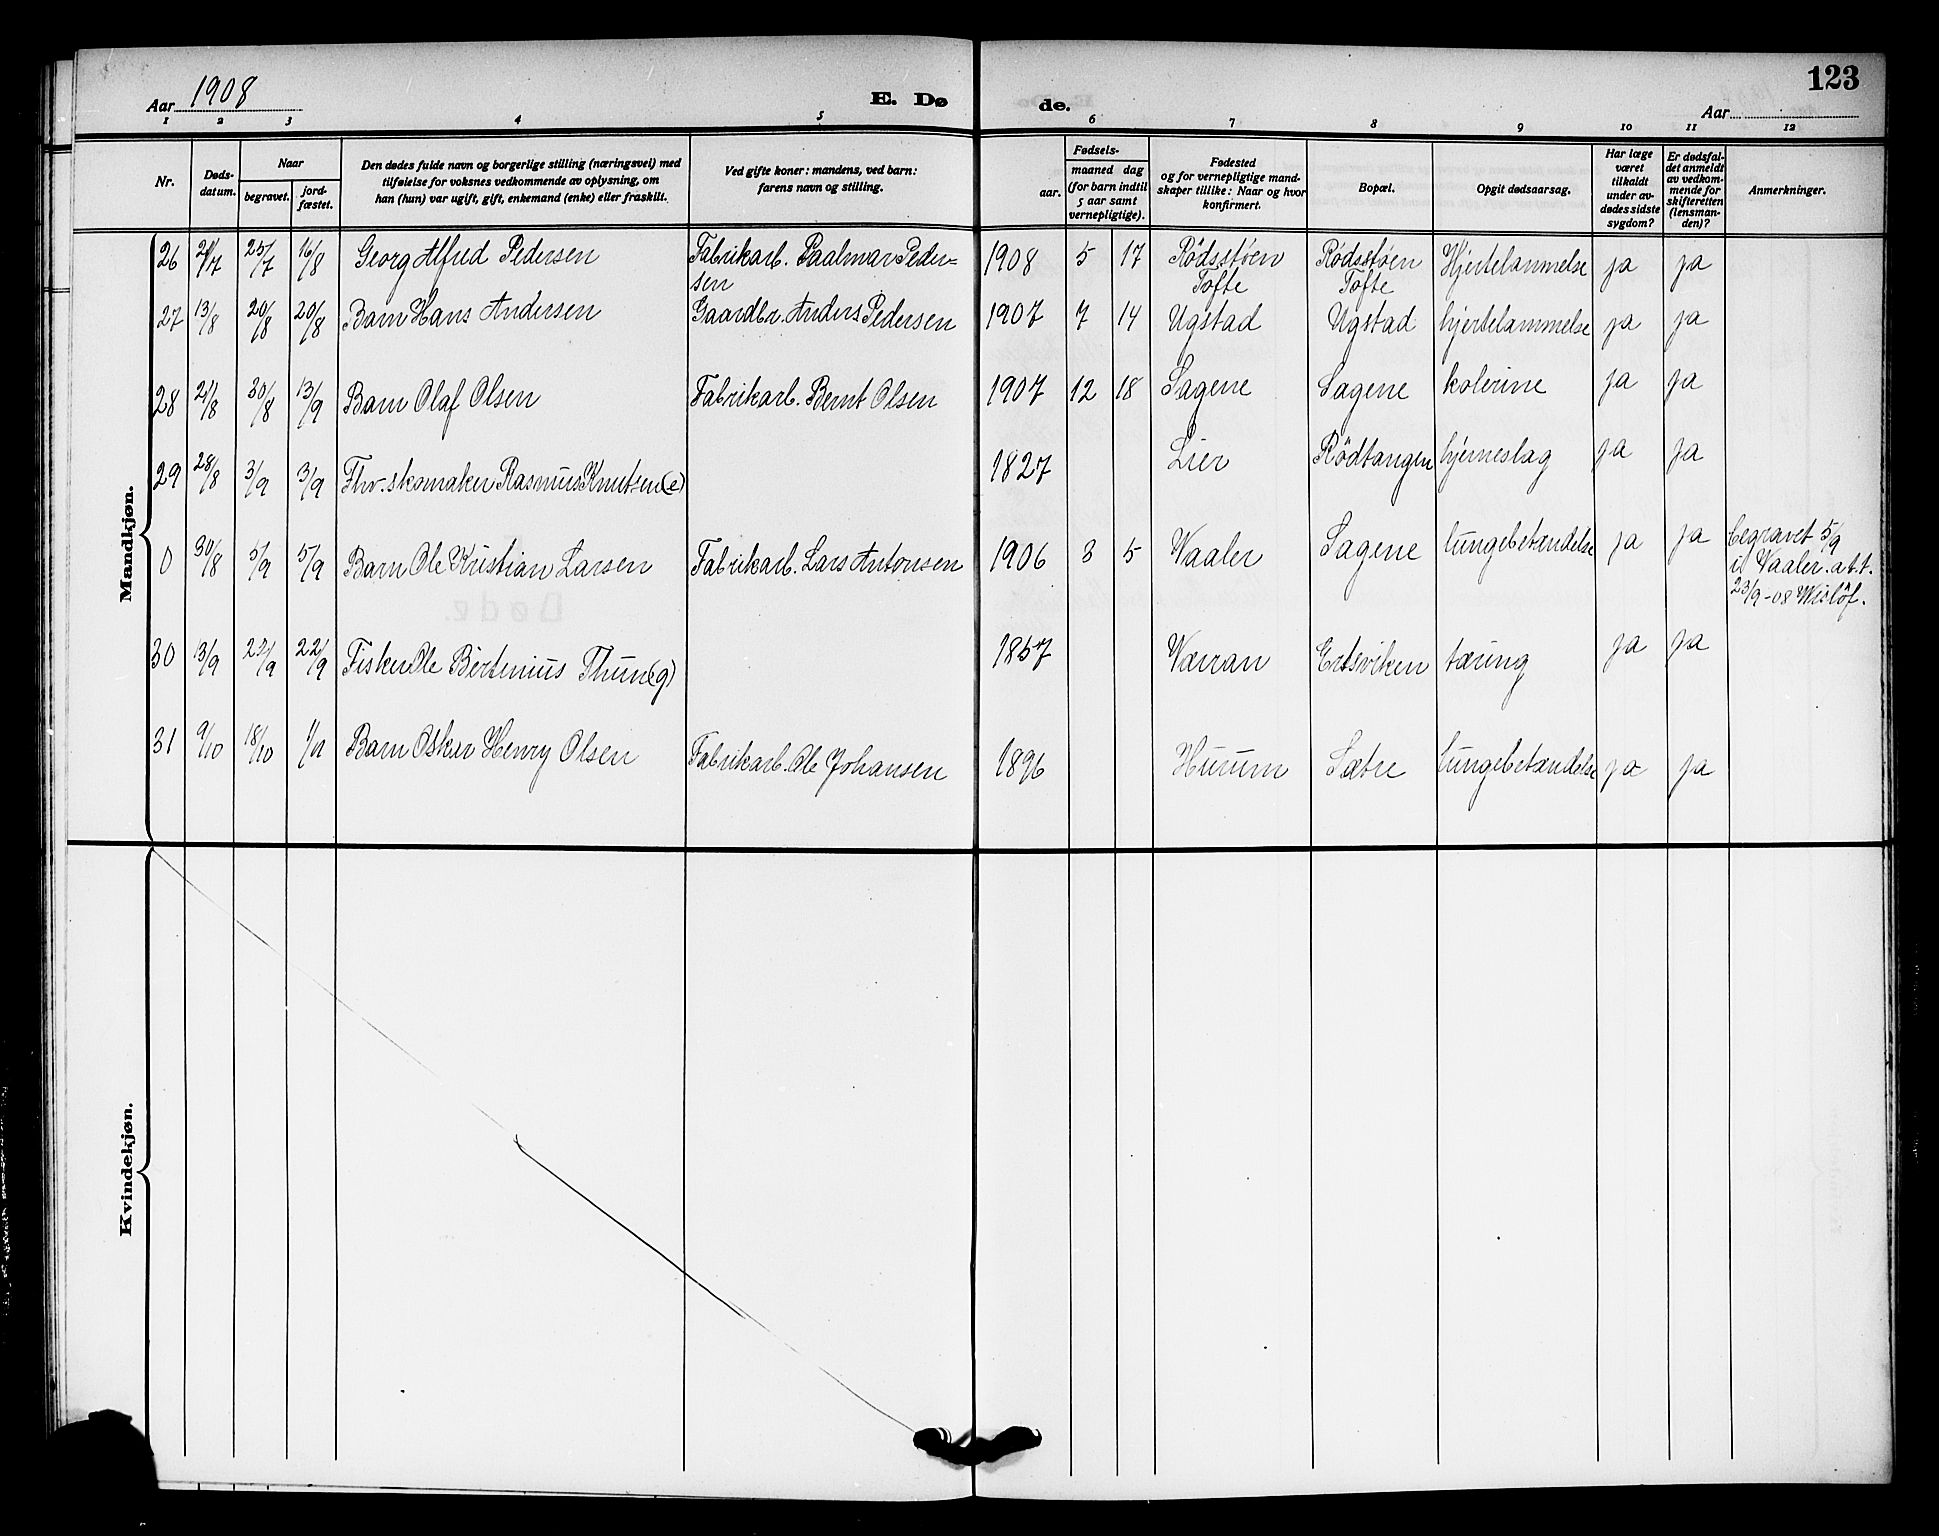 123
Aar 1908
E. Dø
de.
Aar
1 2 3 4 5 6 7 8 9 10 11 12
Nr.
Døds-
datum.
Naar
begravet.
jord-
fæstet.
Den dødes fulde navn og borgerlige stilling (næringsvei) med
tilføielse for voksnes vedkommende av oplysning, om
han (hun) var ugift, gift, enkemand (enke) eller fraskilt.
Ved gifte koner: mandens, ved barn:
farens navn og stilling.
Fødsels-
aar.
maaned dag
(for barn indtil
5 aar samt
vernepligtige).
Fødested
og for vernepligtige mand-
skaper tillike: Naar og hvor
konfirmert.
Bopæl.
Opgit dødsaarsag.
Har læge
været
tilkaldt
under av-
dødes sidste
sygdom?
Er dødsfal-
det anmeldt
av vedkom-
mende for
skifteretten
(lensman-
den)?
Anmerkninger.
Mandkjøn.
26 25/7 16/8 Georg Alfred Pedersen Fabrikarb. Paalmar Peder= 1908 5 17 Rödsstöen Rödsstöen Hjertelammelse ja ja
sen Tofte Tofte
27 13/8 20/8 20/8 Barn Hans Andersen Gaardbr. Anders Pedersen 1907 7 14 Ugstad Ugstad hjertelammelse ja ja
28 30/8 13/9 Barn Olaf Olsen Fabrikarb. Bernt Olsen 1907 12 18 Sagene Sagene kolerine ja ja
29 28/8 3/9 3/9 Fhv. skomaker Rasmus Knutsen (e) 1827 Lier Rödtangen hjerneslag ja ja
0 30/8 5/9 5/9 Barn Ole Kristian Larsen Fabrikarb. Lars Antonsen 1906 3 5 Vaaler Sagene lungebetændelse ja ja begravet 5/9
i Vaaler. att.
23/9-08 Wislöf.
30 13/9 22/9 Fisker Ole Bertinius Thun (g) 1857 Værran Ertsviken tæring ja ja
31 9/10 18/10 1/11 Barn Oskar Henry Olsen Fabrikarb. Ole Johansen 1896 Hurum Sætre lungebetændelse ja ja
Kvindekjøn.